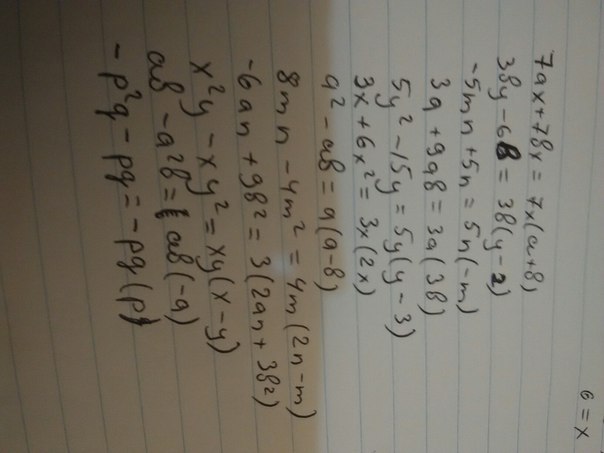 6 = x
7ax + 7bx = 7x(a+b)
3by - 6b = 3b(y-2)
-5mn + 5n = 5n(-m)
3a + 9ab = 3a(3b)
5y² - 15y = 5y(y-3)
3x + 6x² = 3x(2x)
a² - ab = a(a-b)
8mn - 4m² = 4m(2n-m)
-6an + 9b² = 3(2an + 3b²)
x²y - xy² = xy(x-y)
ab - a²b = ab(-a)
-p²q - pq = -pq(p)